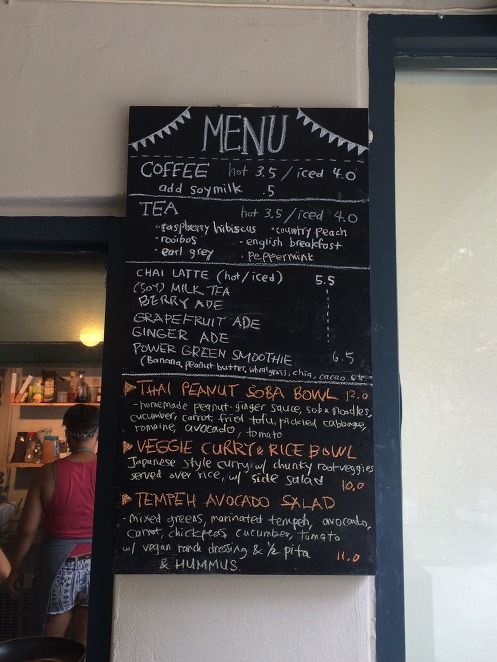 MENU
COFFEE hot 3.5 / iced 4.0
add soymilk .5
TEA hot 3.5 / iced 4.0
• raspberry hibiscus • country peach
• rooibos • english breakfast
• earl grey • peppermint
CHAI LATTE (hot/iced) 5.5
(SOY) MILK TEA
BERRY ADE
GRAPEFRUIT ADE
GINGER ADE
POWER GREEN SMOOTHIE 6.5
(Banana, peanut butter, wheatgrass, chia, cacao, etc
THAI PEANUT SOBA BOWL 12.0
- homemade peanut-ginger sauce, soba noodles,
cucumber, carrot, fried tofu, pickled cabbage,
romaine, avocado, tomato
VEGGIE CURRY & RICE BOWL
Japanese style curry w/ chunky root-veggies
served over rice, w/ side salad 10.0
TEMPEH AVOCADO SALAD
- mixed greens, marinated tempeh, avocado,
carrot, chickpeas cucumber, tomato
w/ vegan ranch dressing & ½ pita 11.0
& HUMMUS